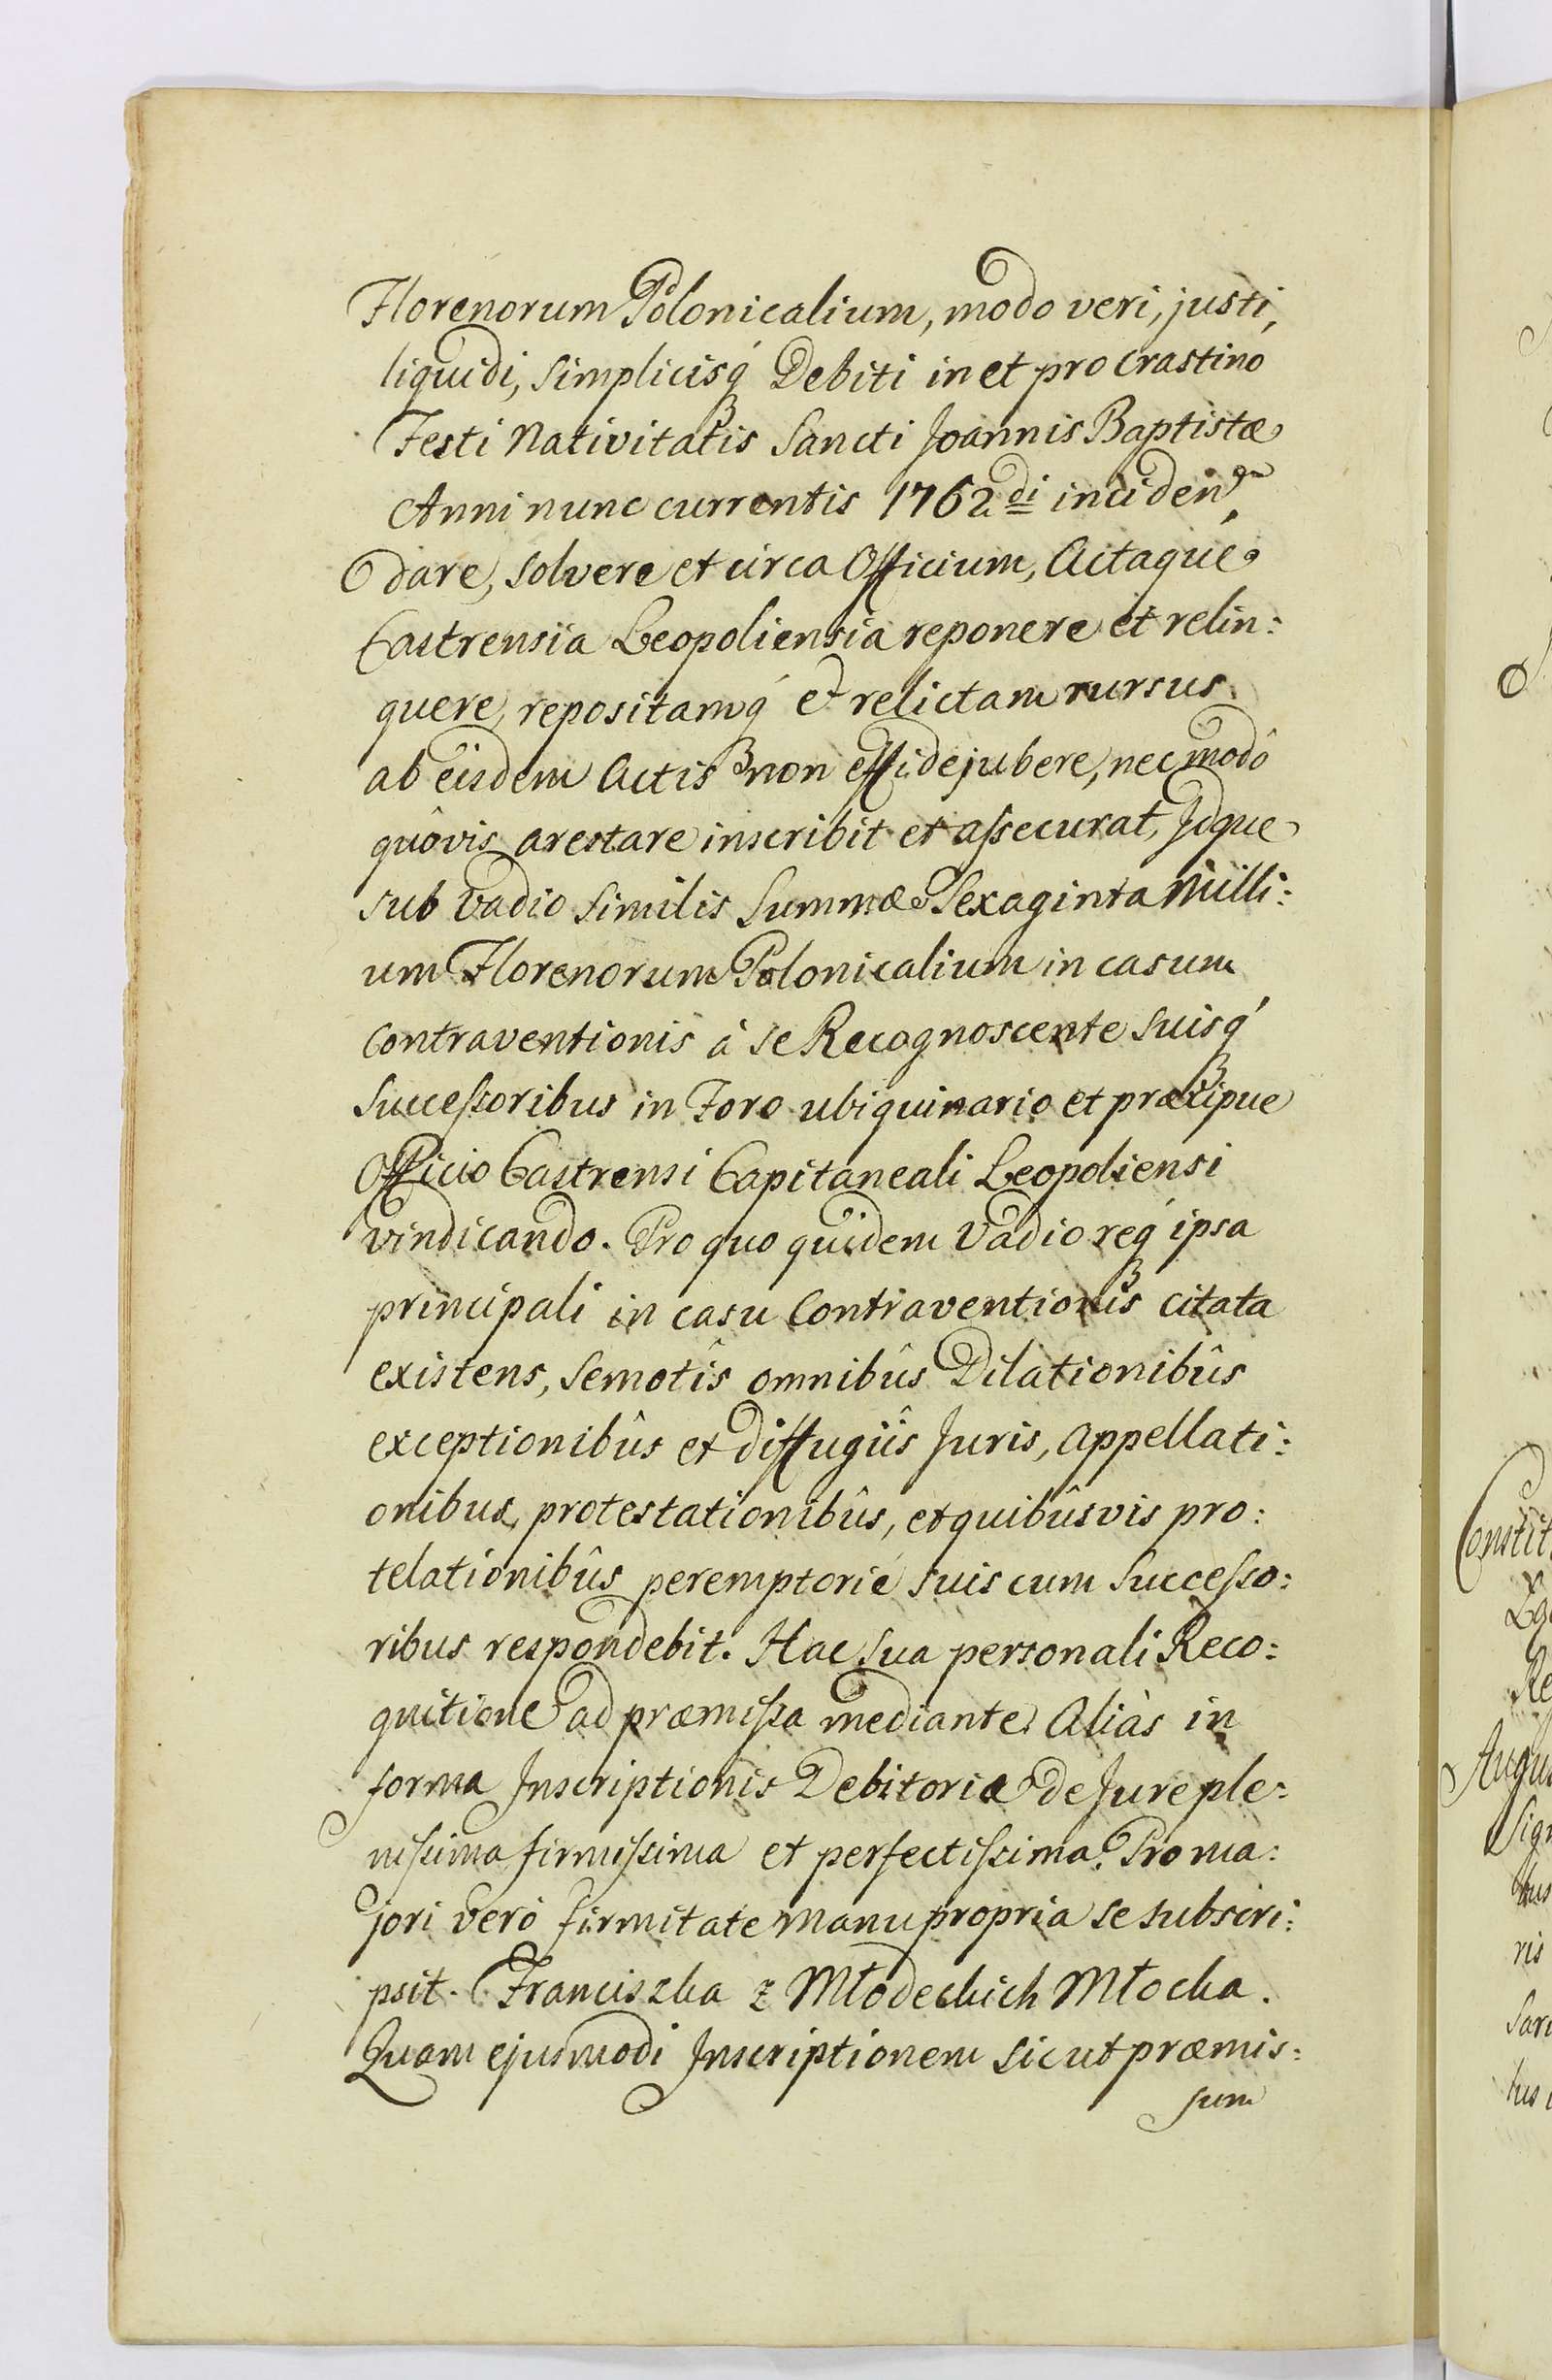 Florenorum Polonicalium, modo veri, justi,
liquidi, simplicisq́ꝫ Debiti in et pro crastino
Festi Nativitatis Sancti Joannis Baptistæ
Anni nunc currentis 1762di inciden.
dare, solvere et circa Officium, Actaque
Castrensia Leopoliensia reponere et relin:
quere, repositamq́ꝫ et relictam rursus
ab eisdem Actis non effidejubere, nec modô
quôvis arestare inscribit et aſsecurat, Jdque
sub Vadio similis Summæ Sexaginta Milli:
um Florenorum Polonicalium in casum
Contraventionis à se Recognoscente suisq́ꝫ
Succeſsoribus in Foro ubiquinario et præcipue
Officio Castrensi Capitaneali Leopoliensi
vindicando. Pro quo quidem Vadio req́ꝫ ipsa
principali in casu Contraventionis citata
existens, semotîs omnibûs Dilationibûs
exceptionibûs et diffugiîs Juris, appellati:
onibus, protestationibûs, et quibûsvis pro:
telationibûs peremptoriè suis cum Succeſso:
ribus respondebit. Hac sua personali Reco:
gnitione ad præmiſsa mediante. Aliàs in
forma Jnscriptionis Debitoriæ de Jure ple:
niſsima firmiſsima et perfectiſsima. Pro ma:
jori verò firmitate manu propria se subscri:
psit. Franciszka z Młodeckich Młocka.
Quam ejusmodi Jnscriptionem sicut præmis:
sum
Constit
Re
Augu
Sig
bus
ris